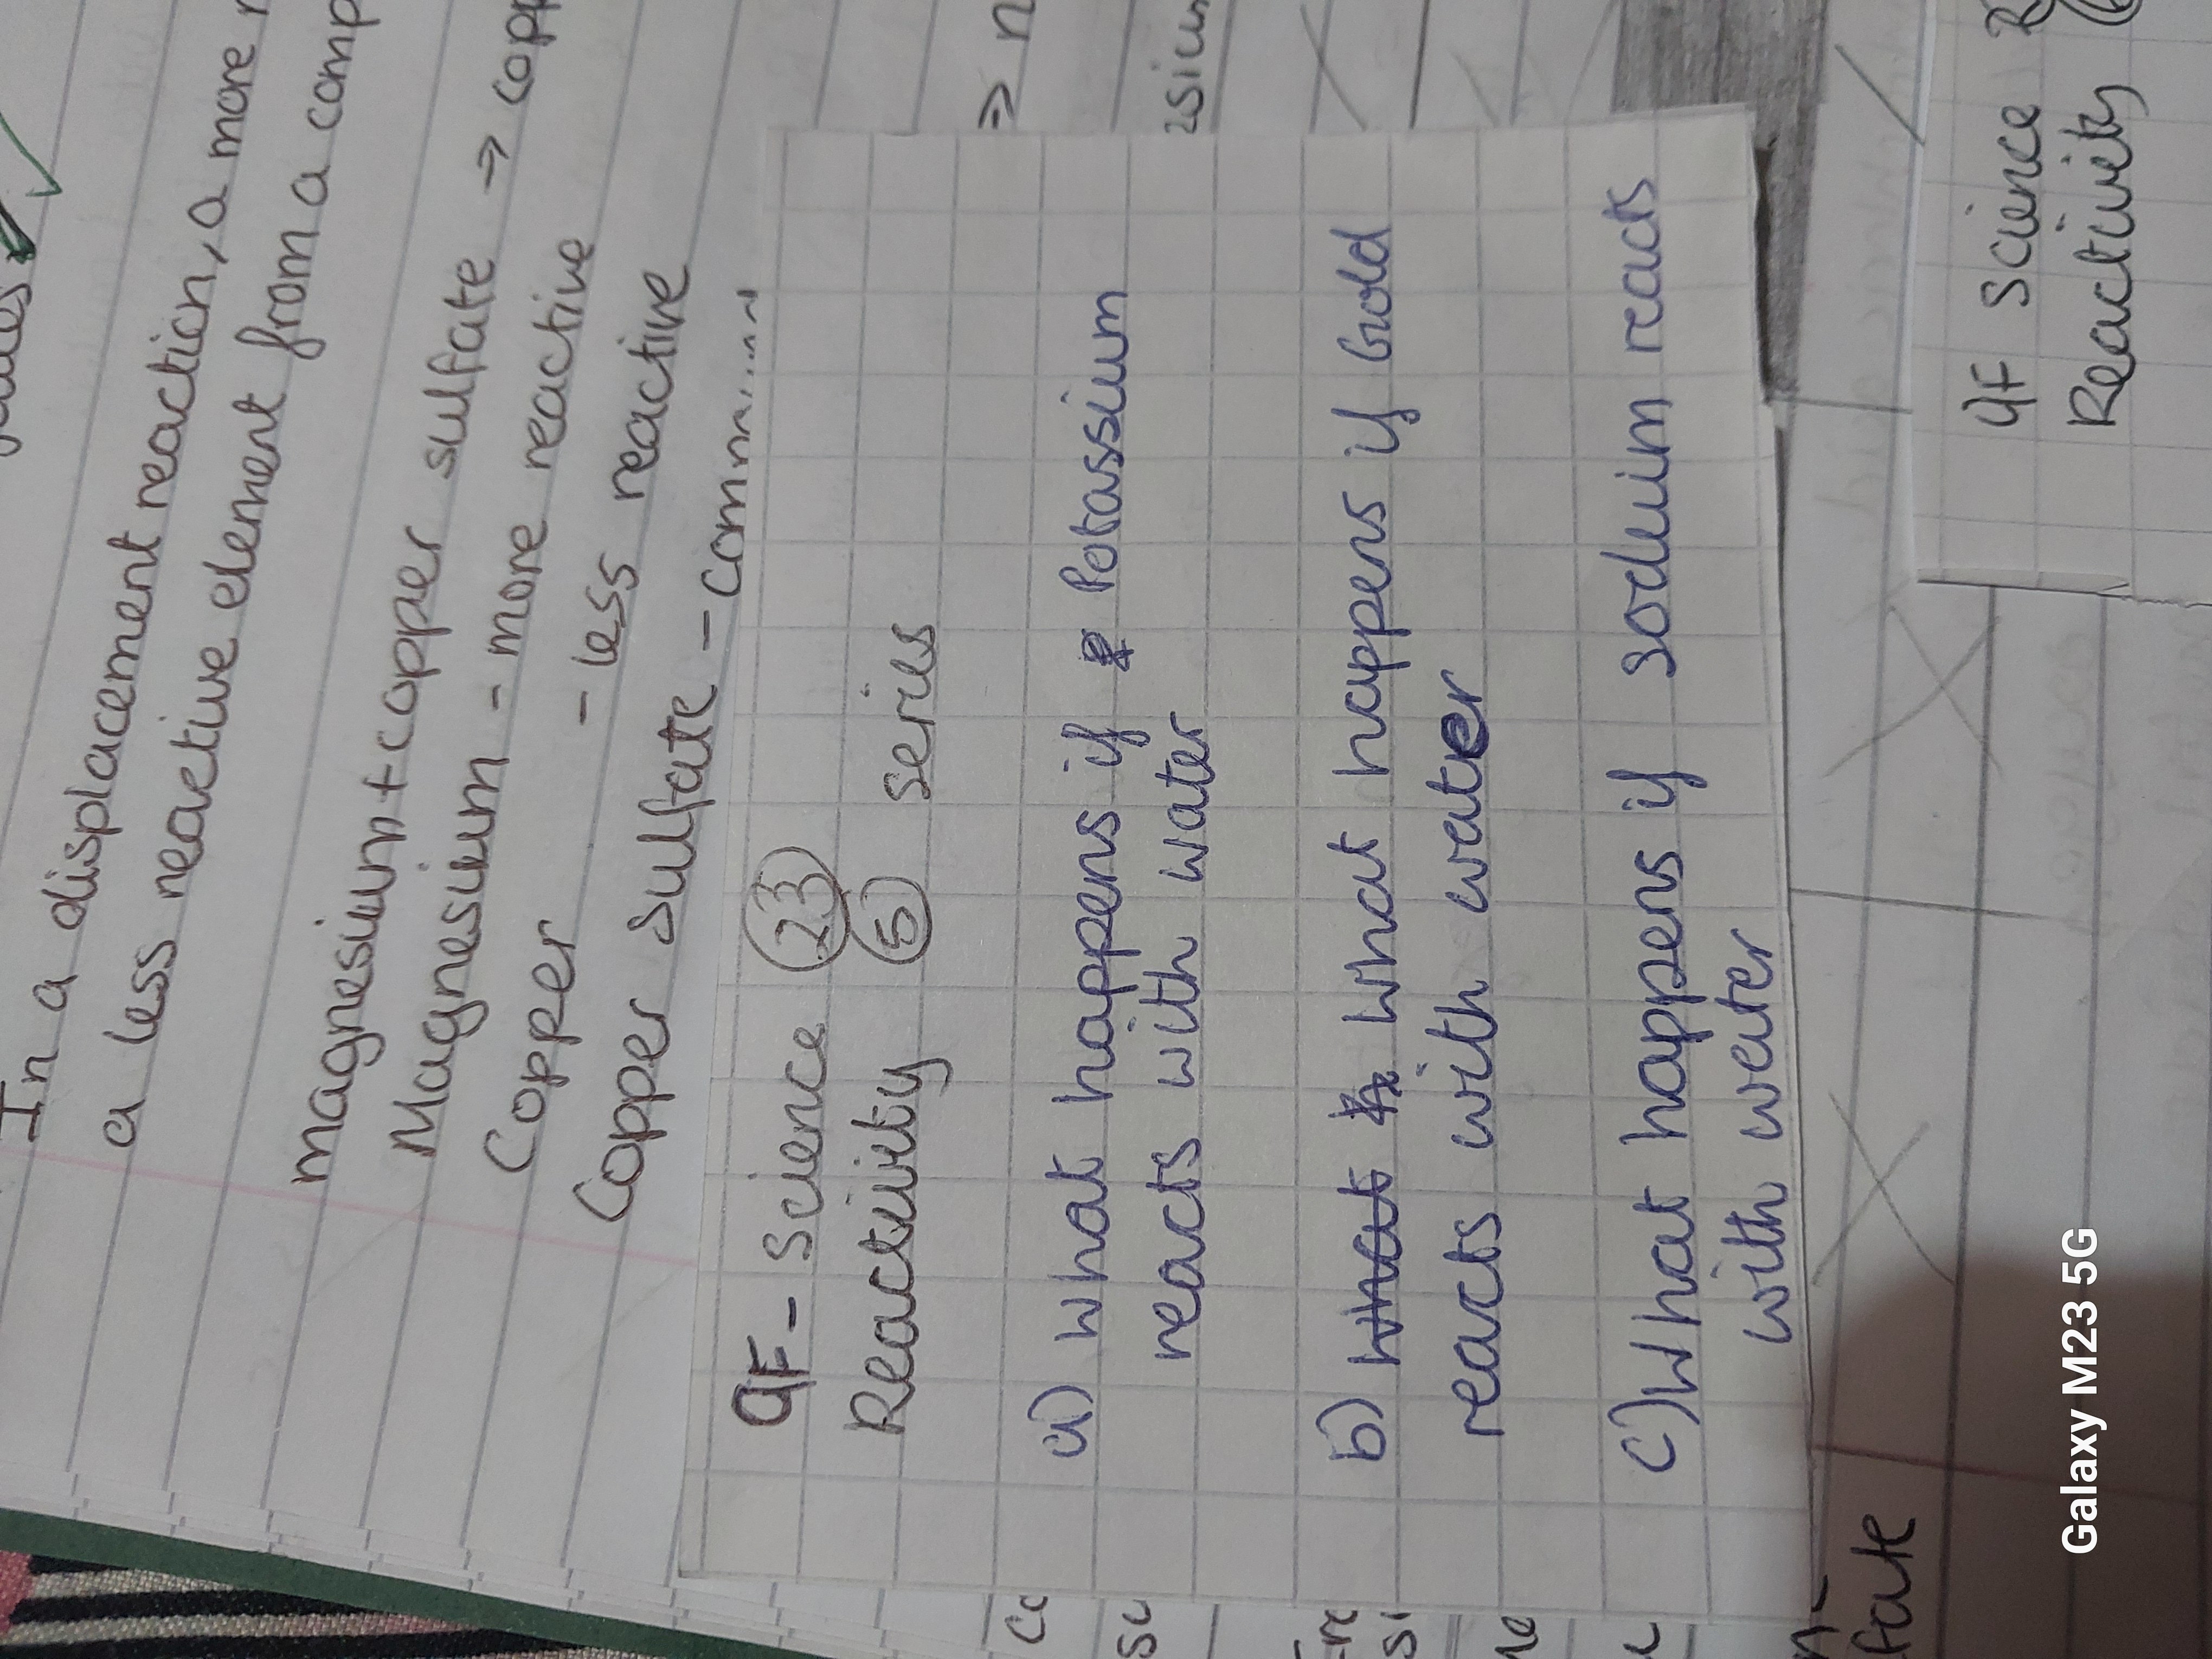 In a displacement reaction, a more
a less reactive element from a comp
magnesium + copper sulfate → copp
Magnesium - more reactive
Copper - less reactive
Copper sulfate -
9F - Science 23
Reactivity 5 series
a) what happens if Potassium
reacts with water
b) what what happens if Gold
reacts with water
c) what happens if sodium reacts
with water
9F Science R
Reactivity
Galaxy M23 5G